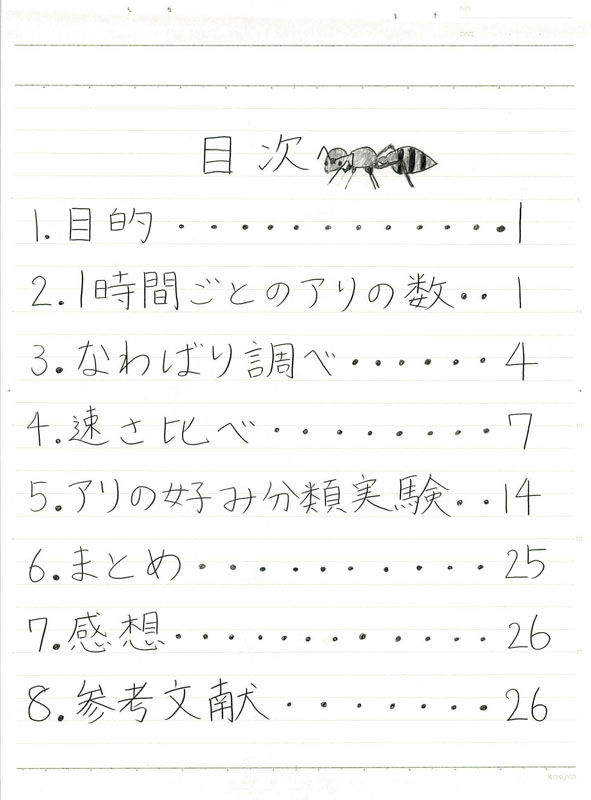 目次
1.目的・・・・・・・・・・・・・1
2.1時間ごとのアリの数・・1
3.なわばり調べ・・・・・・4
4.速さ比べ・・・・・・・・7
5.アリの好み分類実験・・14
6.まとめ・・・・・・・・・・25
7.感想・・・・・・・・・・・・26
8.参考文献・・・・・・・26
KOKUYO